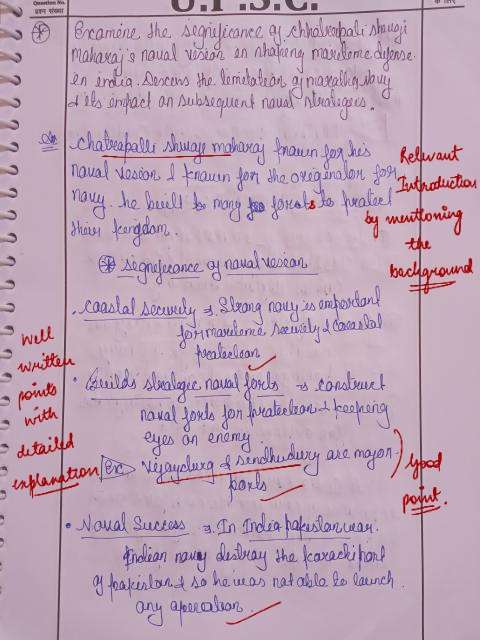 U.P.S.C.
Question No.
प्रश्न संख्या
के लिए
Examine the segnificance of chhatrapati shivaji
maharaj's naval vesion en shapeng mareteme defense
en india. Descuss the lemetation of maratha navy
& its empact on subsequent naval strategees.
Ans
chatrapati shivaje maharaj known for hes
naval vesion & known for the originator for
navy. he built so many forts to protect
their kengdom.
Relevant
Introduction
by mentioning
the
background
segneficance of naval vesean
• coastal securely → Strong navy is emportant
for mareteme securety & coastal
protection
Well
written
points
with
detailed
explanation
• builds strategec naval forts → construct
naval forts for protection & keepeng
eyes on enemy
Ex: Vejaydurg & sendhudurg are major
ports
Good
point.
• Naval Success → In India pakistan war.
Indian navy destroy the karachi port
of pakistan & so he was not able to launch
any operation